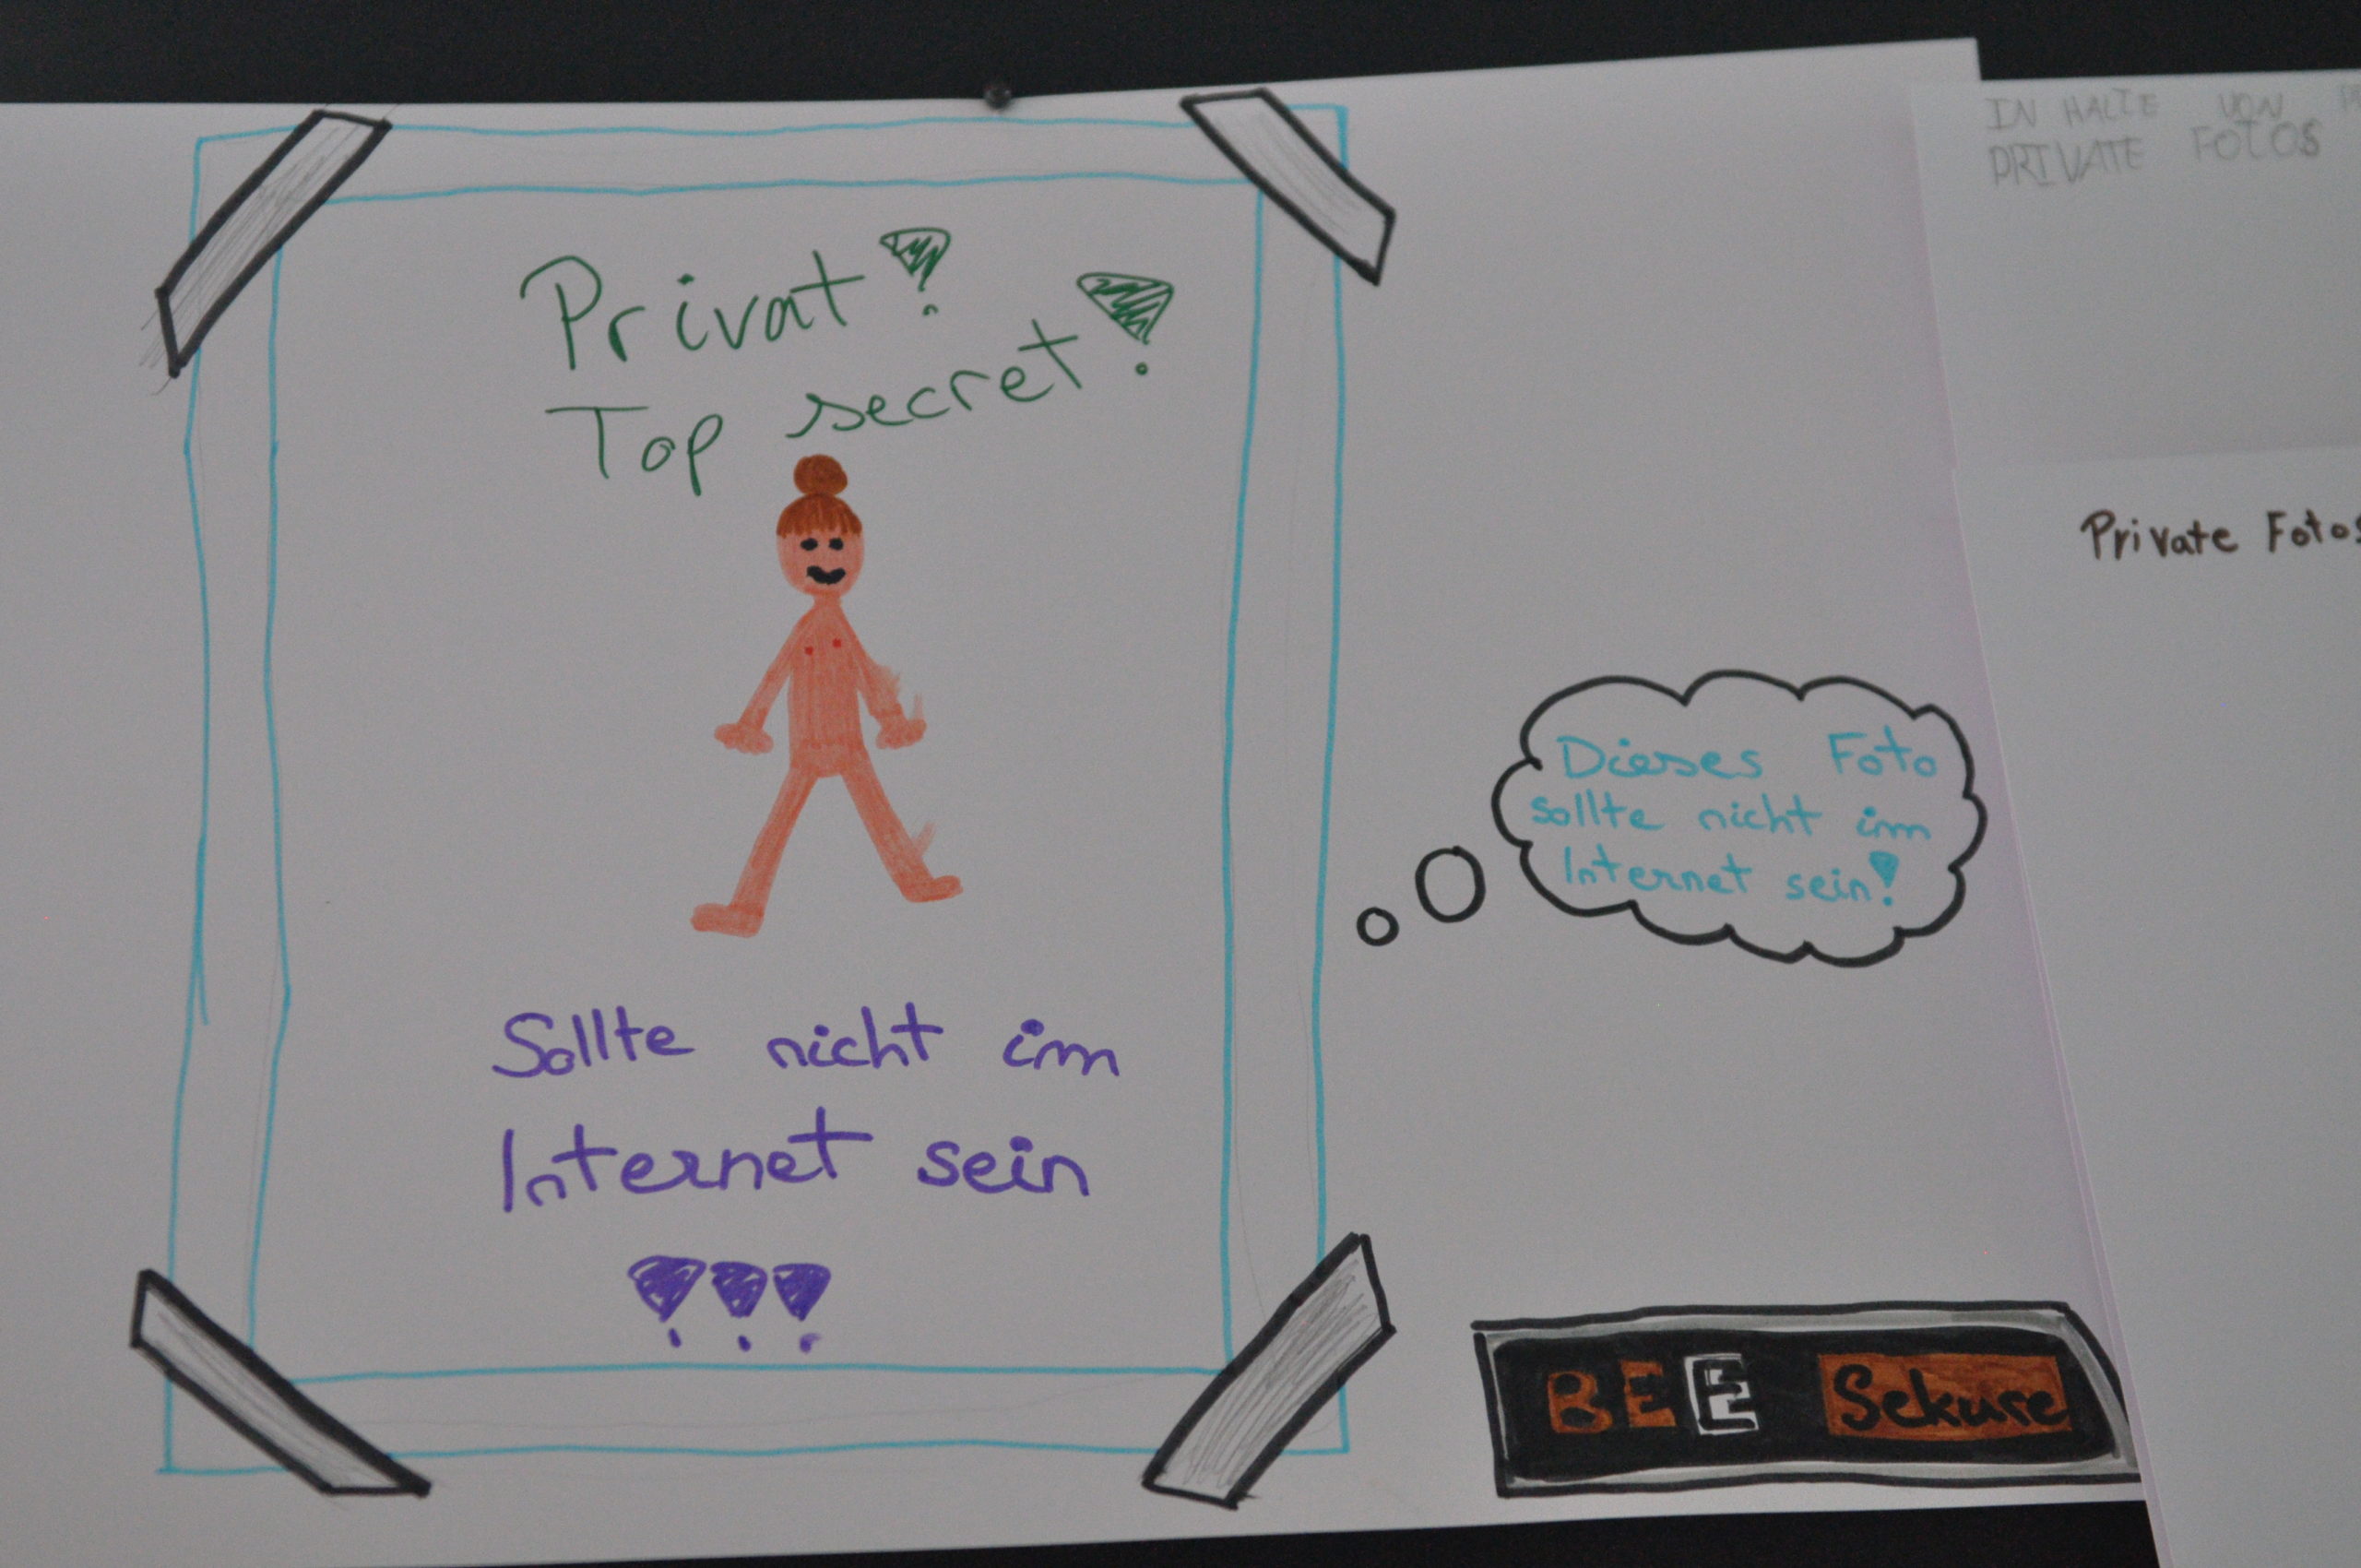 Privat!
Top secret!
Sollte nicht im
Internet sein
!!!
Dieses Foto
sollte nicht im
Internet sein!
BEE Sekure
IN HALTE VON
PRIVATE FOTOS
Private Fotos